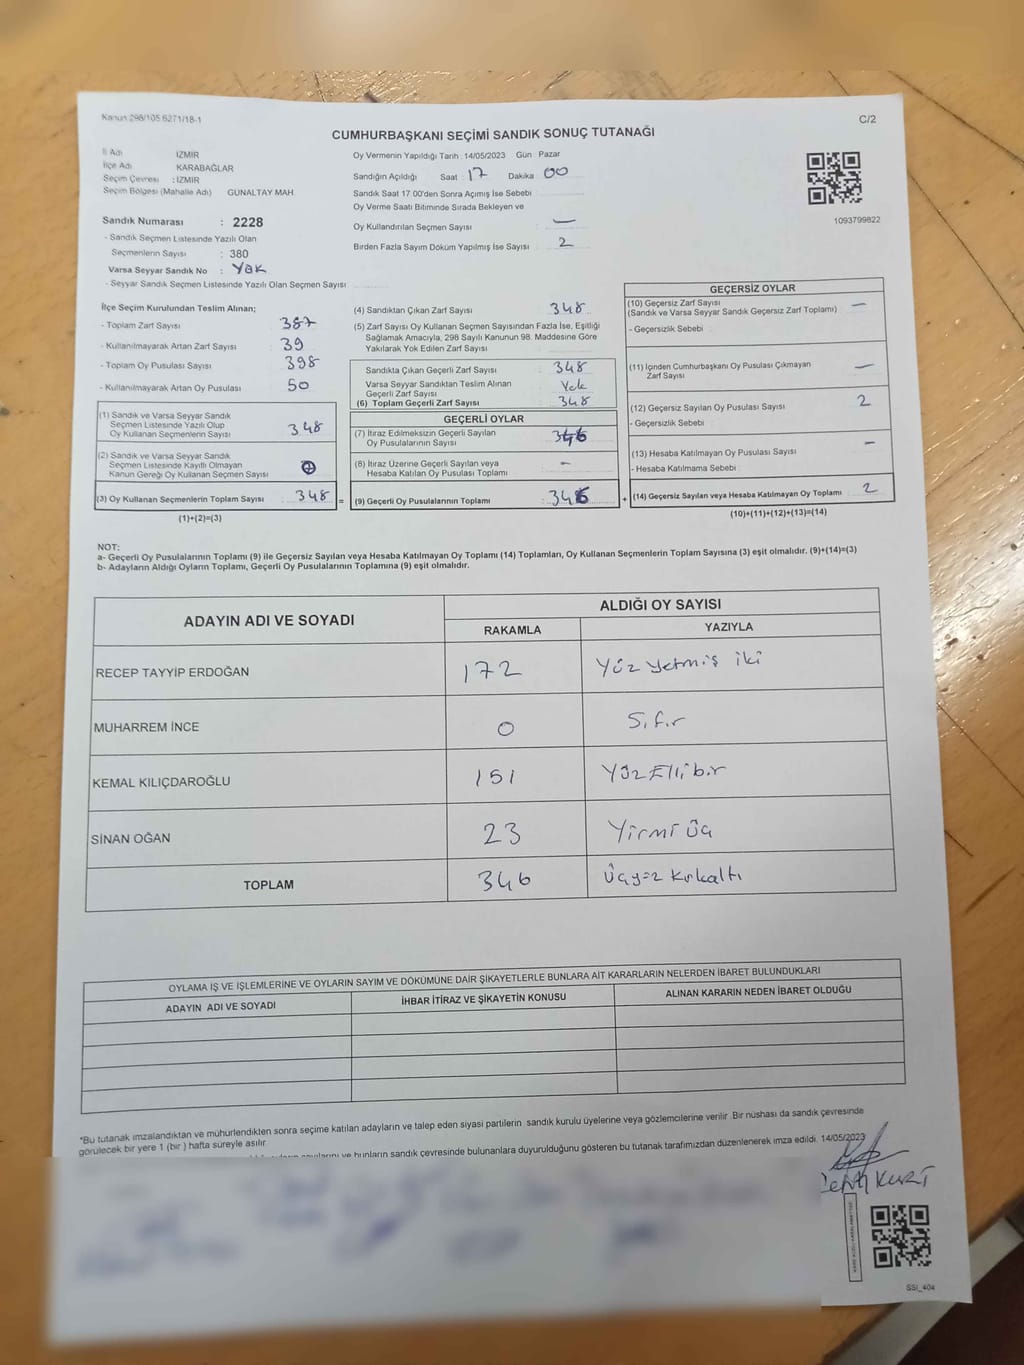 Kanun 298/105 6271/18-1
C/2
CUMHURBAŞKANI SEÇİMİ SANDIK SONUÇ TUTANAĞI
İl Adı İZMİR
İlçe Adı KARABAĞLAR
Seçim Çevresi : İZMİR
Seçim Bölgesi (Mahalle Adı) GÜNALTAY MAH
Sandık Numarası : 2228
- Sandık Seçmen Listesinde Yazılı Olan
Seçmenlerin Sayısı : 380
Varsa Seyyar Sandık No : YOK
- Seyyar Sandık Seçmen Listesinde Yazılı Olan Seçmen Sayısı
Oy Vermenin Yapıldığı Tarih 14/05/2023 Gün Pazar
Sandığın Açıldığı Saat : 17 Dakika 00
Sandık Saat 17 00'den Sonra Açımış İse Sebebi
Oy Verme Saati Bitiminde Sırada Bekleyen ve
Oy Kullandırılan Seçmen Sayısı : —
Birden Fazla Sayım Döküm Yapılmış İse Sayısı : 2
1093799822
İlçe Seçim Kurulundan Teslim Alınan;
- Toplam Zarf Sayısı : 387
- Kullanılmayarak Artan Zarf Sayısı : 39
- Toplam Oy Pusulası Sayısı : 398
- Kullanılmayarak Artan Oy Pusulası : 50
(1) Sandık ve Varsa Seyyar Sandık
Seçmen Listesinde Yazılı Olup
Oy Kullanan Seçmenlerin Sayısı : 348
(2) Sandık ve Varsa Seyyar Sandık
Seçmen Listesinde Kayıtlı Olmayan
Kanun Gereği Oy Kullanan Seçmen Sayısı
(3) Oy Kullanan Seçmenlerin Toplam Sayısı : 348 =
(1)+(2)=(3)
(4) Sandıktan Çıkan Zarf Sayısı : 348
(5) Zarf Sayısı Oy Kullanan Seçmen Sayısından Fazla İse, Eşitliği
Sağlamak Amacıyla, 298 Sayılı Kanunun 98. Maddesine Göre
Yakılarak Yok Edilen Zarf Sayısı
Sandıkta Çıkan Geçerli Zarf Sayısı : 348
Varsa Seyyar Sandıktan Teslim Alınan
Geçerli Zarf Sayısı : Yok
(6) Toplam Geçerli Zarf Sayısı : 348
GEÇERLİ OYLAR
(7) İtiraz Edilmeksizin Geçerli Sayılan
Oy Pusulalarının Sayısı : 346
(8) İtiraz Üzerine Geçerli Sayılan veya
Hesaba Katılan Oy Pusulası Toplamı : –
(9) Geçerli Oy Pusulalarının Toplamı : 346 +
GEÇERSİZ OYLAR
(10) Geçersiz Zarf Sayısı
(Sandık ve Varsa Seyyar Sandık Geçersiz Zarf Toplamı) : —
- Geçersizlik Sebebi
(11) İçinden Cumhurbaşkanı Oy Pusulası Çıkmayan
Zarf Sayısı : —
(12) Geçersiz Sayılan Oy Pusulası Sayısı : 2
- Geçersizlik Sebebi
(13) Hesaba Katılmayan Oy Pusulası Sayısı : –
- Hesaba Katılmama Sebebi
(14) Geçersiz Sayılan veya Hesaba Katılmayan Oy Toplamı : 2
(10)+(11)+(12)+(13)=(14)
NOT:
a- Geçerli Oy Pusulalarının Toplamı (9) ile Geçersiz Sayılan veya Hesaba Katılmayan Oy Toplamı (14) Toplamları, Oy Kullanan Seçmenlerin Toplam Sayısına (3) eşit olmalıdır. (9)+(14)=(3)
b- Adayların Aldığı Oyların Toplamı, Geçerli Oy Pusulalarının Toplamına (9) eşit olmalıdır.
ADAYIN ADI VE SOYADI ALDIĞI OY SAYISI
RAKAMLA YAZIYLA
RECEP TAYYİP ERDOĞAN 172 Yüz yetmiş iki
MUHARREM İNCE 0 Sıfır
KEMAL KILIÇDAROĞLU 151 Yüz Elli bir
SİNAN OĞAN 23 Yirmi üç
TOPLAM 346 Üçyüz kırkaltı
OYLAMA İŞ VE İŞLEMLERİNE VE OYLARIN SAYIM VE DÖKÜMÜNE DAİR ŞİKAYETLERLE BUNLARA AİT KARARLARIN NELERDEN İBARET BULUNDUKLARI
ADAYIN ADI VE SOYADI İHBAR İTİRAZ VE ŞİKAYETİN KONUSU ALINAN KARARIN NEDEN İBARET OLDUĞU
*Bu tutanak imzalandıktan ve mühürlendikten sonra seçime katılan adayların ve talep eden siyasi partilerin sandık kurulu üyelerine veya gözlemcilerine verilir .Bir nüshası da sandık çevresinde
görülecek bir yere 1 (bir ) hafta süreyle asılır.
ve bunların sandık çevresinde bulunanlara duyurulduğunu gösteren bu tutanak tarafımızdan düzenlenerek imza edildi. 14/05/2023
KURT
SSİ_404